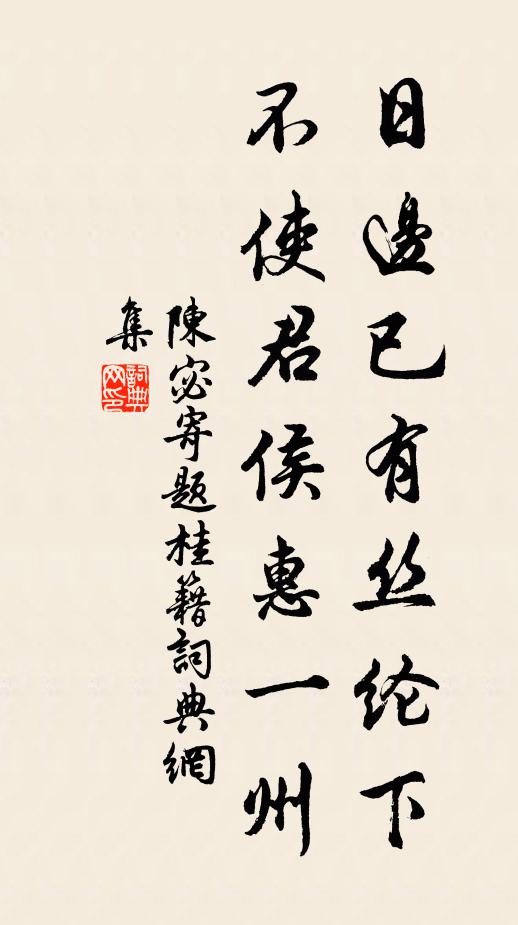 日邊已有丝纶下
不使君侯惠一州
陳宓寄题桂籍詞典網
集
詞典网印